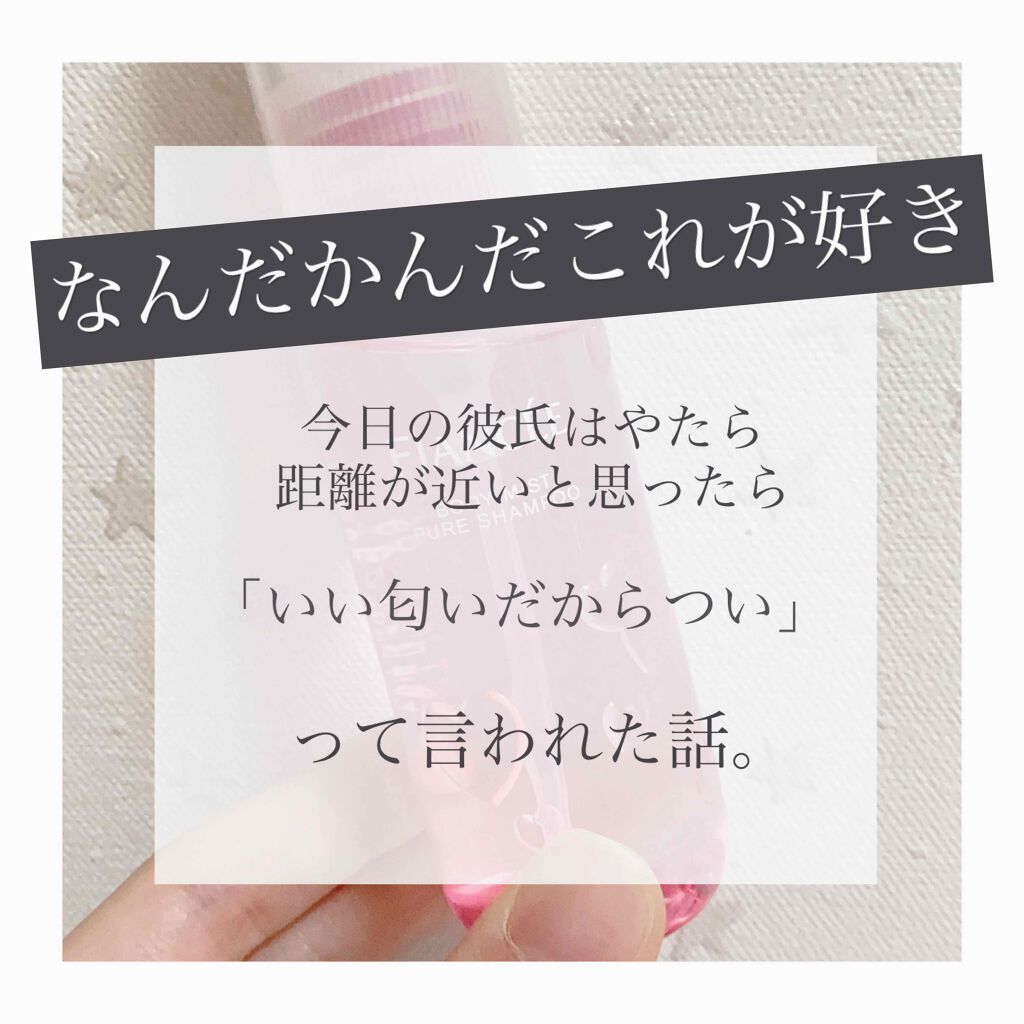 なんだかんだこれが好き
今日の彼氏はやたら
距離が近いと思ったら
「いい匂いだからつい」
って言われた話。
FIANCÉE
BODY MIST
PURE SHAMPOO